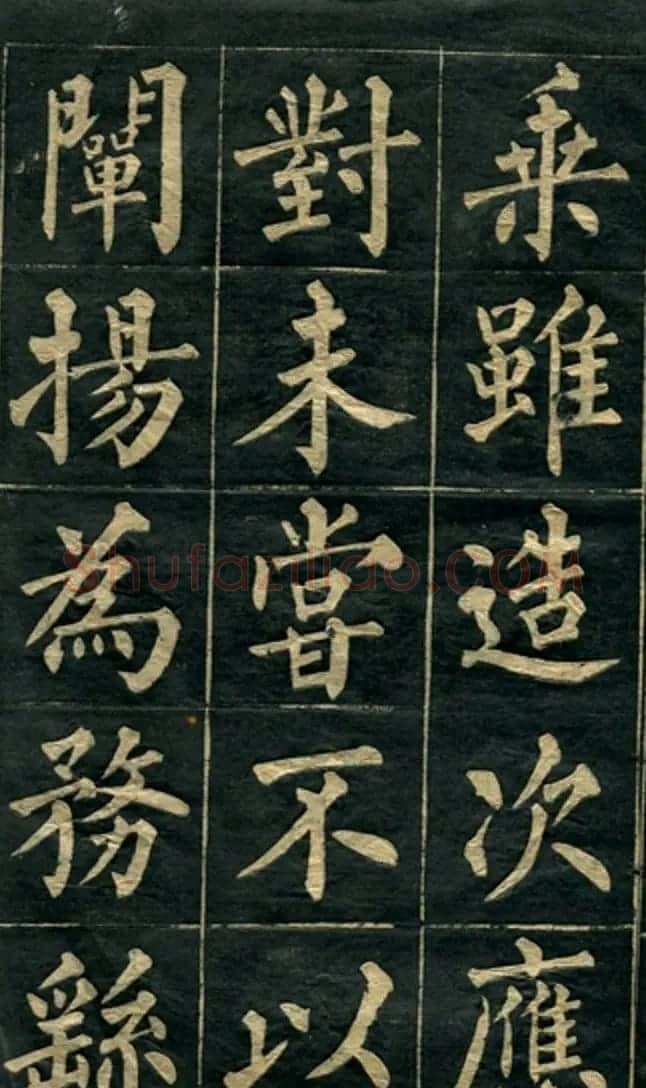 乗雖造次應
對未嘗不以
闡揚為務繇
Shufaziliao.COM